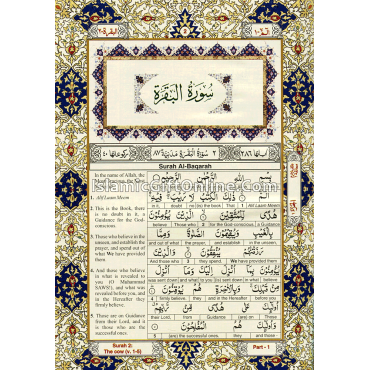 سُورَةُ الْبَقَرَةِ
Surah Al-Baqarah
In the name of Allah, the
1. Alif Laam Meem
2. This is the Book, there
is no doubt in it, a
Guidance for the God-
conscious
3. Those who believe in the
unseen, and establish the
prayer, and spend out of
what We have provided
them
4. And those who believe
in what is revealed to
you (O Muhammad
SAWS), and what was
revealed before you, and
in the Hereafter they
firmly believe.
5. Those are on Guidance
from their Lord, and it
is those who are the
successful ones.
بِسْمِ اللهِ الرَّحْمٰنِ الرَّحِيْمِ
الٓمّٓ ذٰلِكَ الْكِتٰبُ لَا رَيْبَ فِيْهِ
in it, no (is) the Book That 1 Alif Laam Meem
هُدًى لِّلْمُتَّقِيْنَ الَّذِيْنَ يُؤْمِنُوْنَ
believe Those who 2 (for the God-conscious.) a Guidance
بِالْغَيْبِ وَيُقِيْمُوْنَ الصَّلٰوةَ وَمِمَّا
and out of what the prayer, and establish in the unseen,
رَزَقْنٰهُمْ يُنْفِقُوْنَ وَالَّذِيْنَ
And those who 3 they spend. We have provided them
يُؤْمِنُوْنَ بِمَآ اُنْزِلَ اِلَيْكَ وَمَآ اُنْزِلَ
was sent down and what to you (is) sent down in what believe
مِنْ قَبْلِكَ وَبِالْاٰخِرَةِ هُمْ يُوْقِنُوْنَ
4 firmly believe. they and in the Hereafter before you
اُولٰٓئِكَ عَلٰى هُدًى مِّنْ رَّبِّهِمْ
their Lord, from Guidance (are) on Those
وَاُولٰٓئِكَ هُمُ الْمُفْلِحُوْنَ
5 (are) the successful ones. they and those
Surah 2:
The cow (v. 1-5)
Part - 1